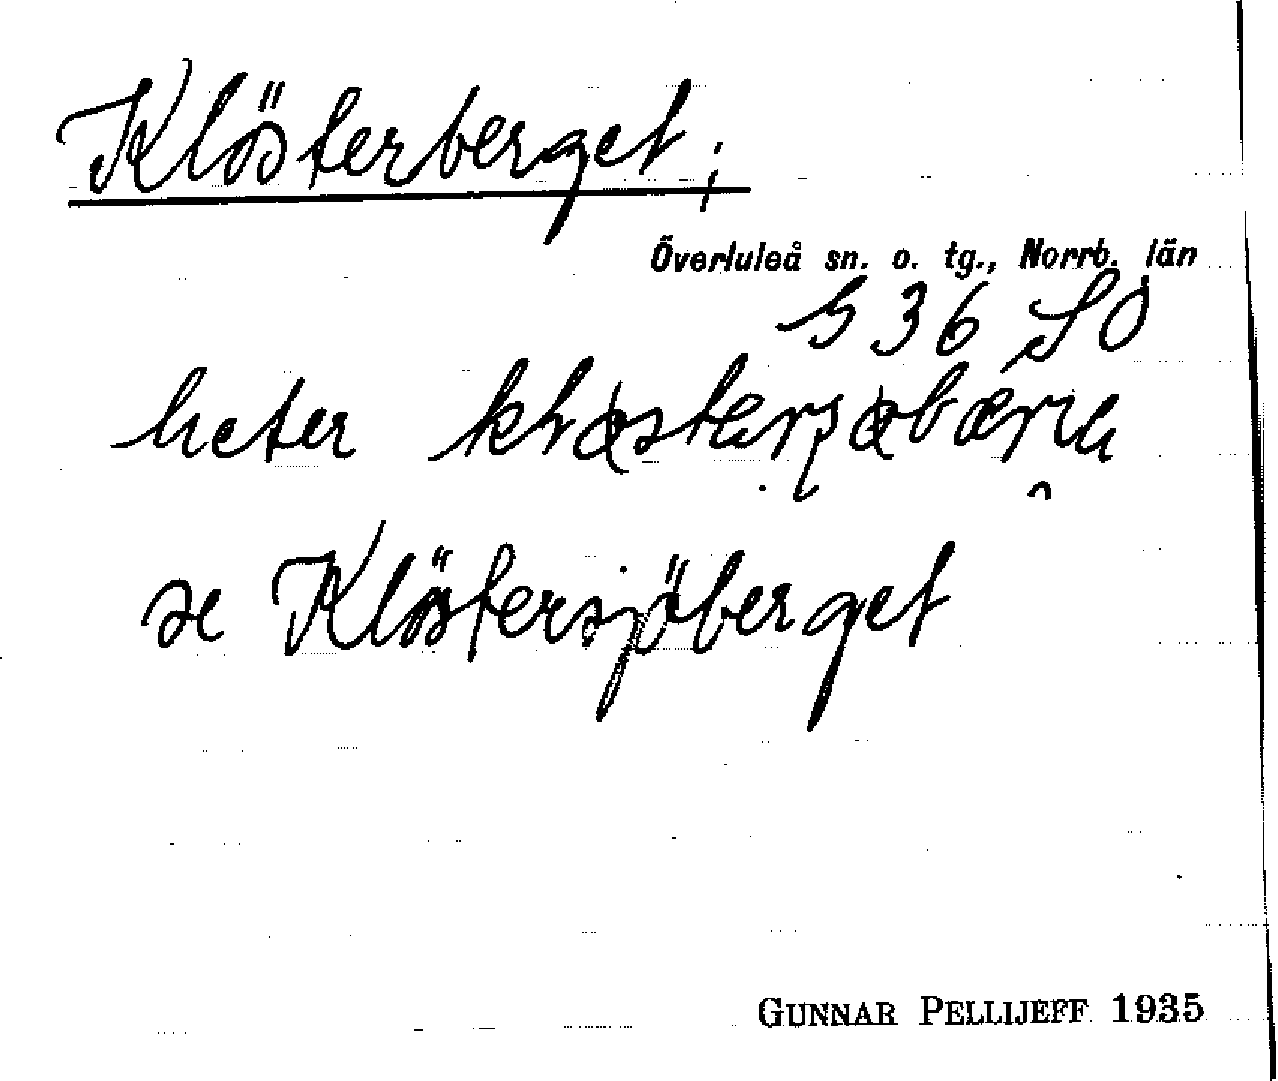 Klösterberget;
Överluleå sn. o. tg., Norrb. län
S 36 SO
heter
se Klöstersjöberget
GUNNAR PELLIJEFF 1935